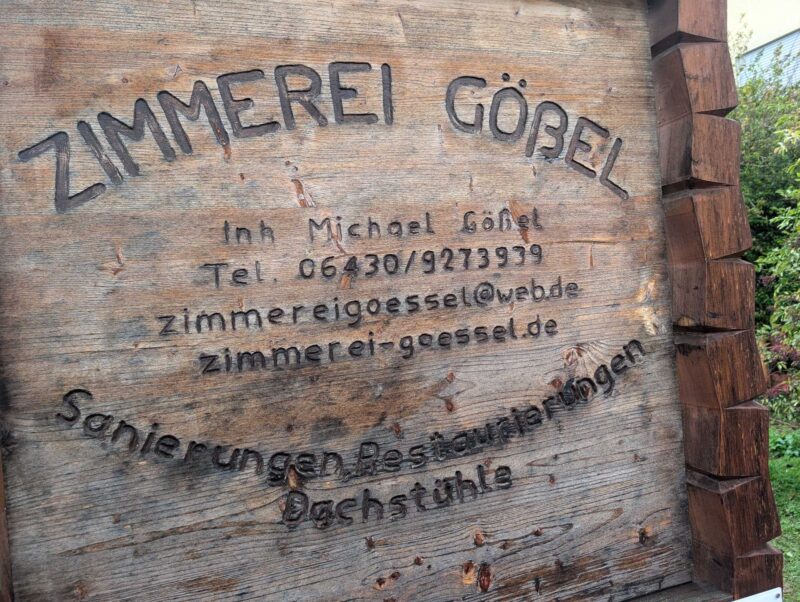 ZIMMEREI GÖßEL
Inh Michael Gößel
Tel. 06430/9273939
zimmereigoessel@web.de
zimmerei-goessel.de
Sanierungen, Restaurierungen
Dachstühle